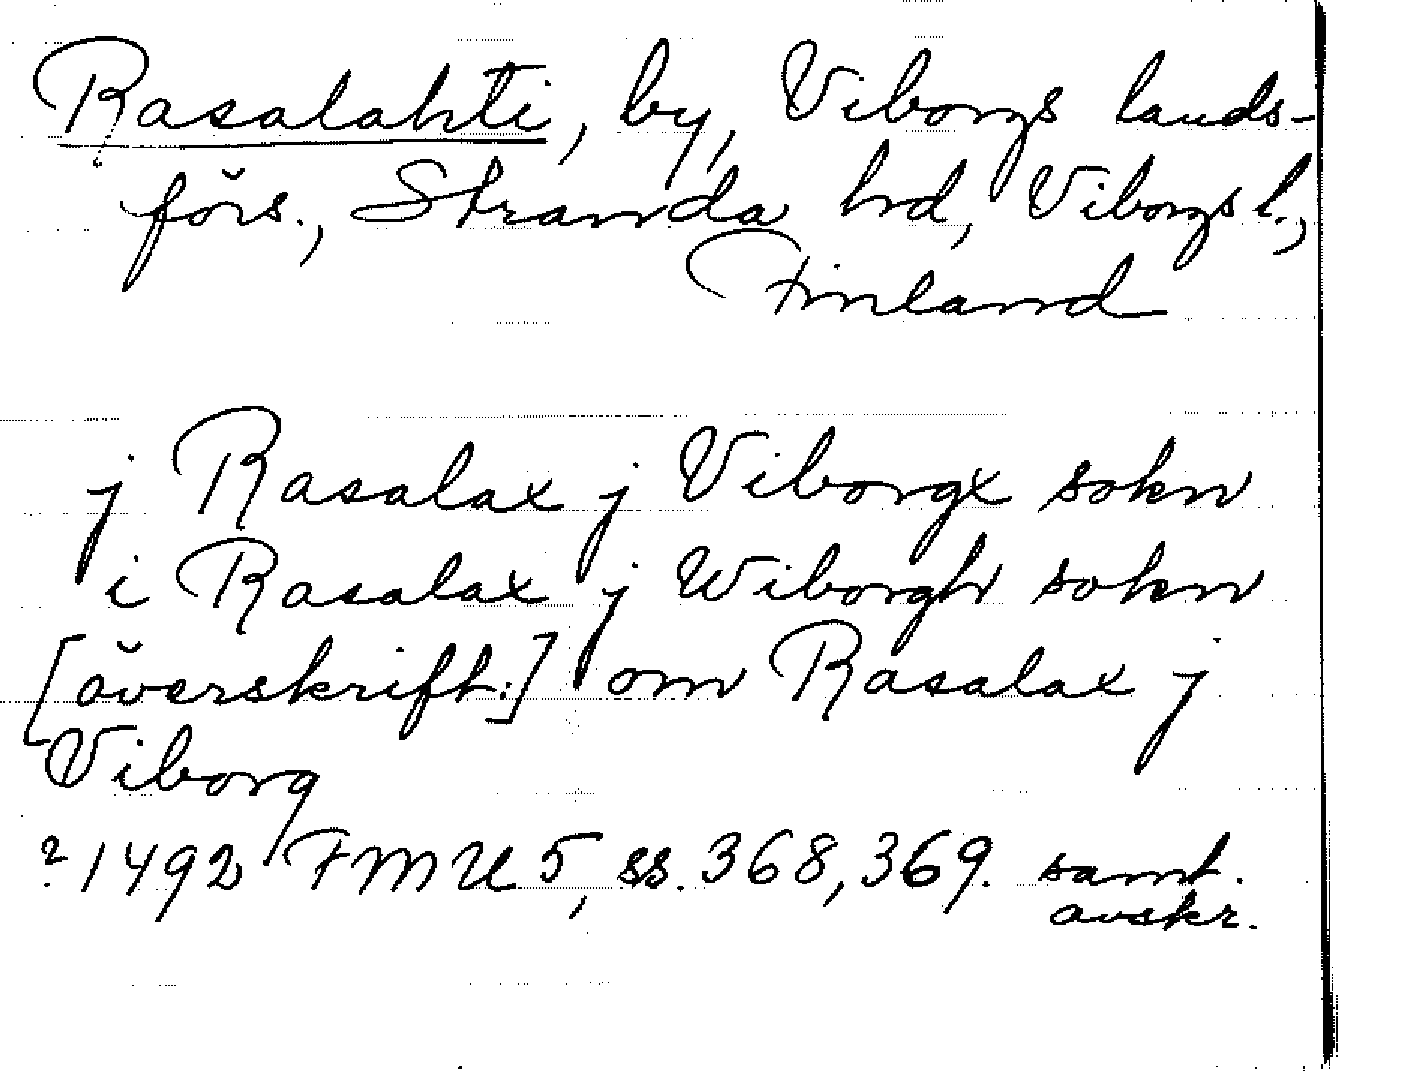 Rasalahti, by, Viborgs lands-
förs., Stranda hd, Viborgs l.,
Finland
j Rasalax j Viborgx sokn
i Rasalax j Wiborgh sokn
[överskrift:] om Rasalax j
Viborg
?1492 FMU 5, ss. 368, 369. samt.
avskr.